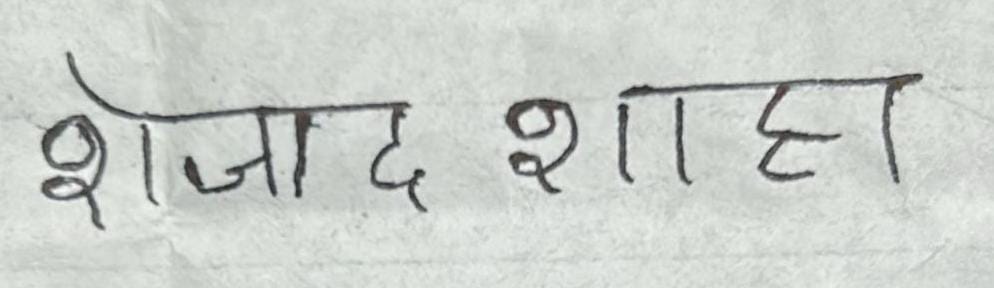 शेजाद शाहा